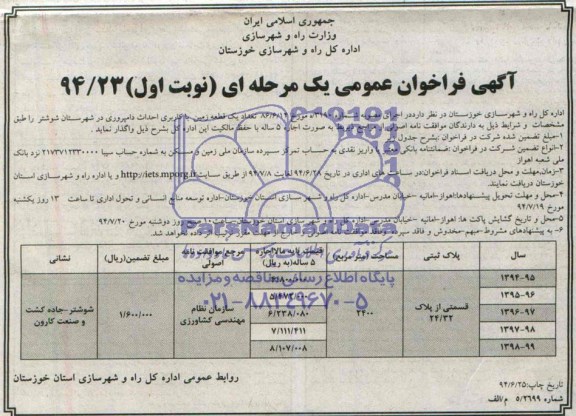 جمهوری اسلامی ایران
وزارت راه و شهرسازی
اداره کل راه و شهرسازی خوزستان
آگهی فراخوان عمومی یک مرحله ای (نوبت اول) ۹۴/۲۳
اداره کل راه و شهرسازی خوزستان در نظر دارد در اجرای مصوبه شماره مورخ ۸۶/۶/۱۴ تعداد یک قطعه زمین با کاربری احداث دامپروری در شهرستان شوشتر را طبق
مشخصات و شرایط ذیل به دارندگان موافقت نامه اصولی از مراجع ذیربط به صورت اجاره ۵ ساله با حفظ مالکیت این اداره کل بشرح ذیل واگذار نماید .
۱-مبلغ تضمین شده شرکت در فراخوان :بشرح جدول
۲-انواع تضمین شرکت در فراخوان :ضمانتنامه بانکی واریز نقدی به حساب تمرکز سپرده سازمان ملی زمین و مسکن به شماره حساب سیبا ۲۱۷۳۷۱۲۳۳۰۰۰ نزد بانک
ملی شعبه اهواز
۳-زمان،مهلت و محل دریافت اسناد فراخوان:در ساعت های اداری در تاریخ ۹۴/۶/۲۸ لغایت ۹۴/۷/۸ از طریق سایت http://iets.mporg.ir و یا اداره راه و شهرسازی استان
خوزستان دریافت نمایند.
۴-محل و مهلت تحویل پیشنهادها:اهواز-امانیه -خیابان مدرس-اداره کل راه و شهر سازی استان خوزستان -اداره توسعه منابع انسانی و تحویل اداری تا ساعت ۱۳ روز یکشنبه
مورخ ۹۴/۷/۱۹
۵-محل و تاریخ گشایش پاکت ها: اهواز-امانیه -خیابان مدرس-اداره کل راه و شهر سازی استان خوزستان- ساعت ۱۰ صبح روز دوشنبه مورخ ۹۴/۷/۲۰
۶- به پیشنهادهای مشروط-مبهم-مخدوش و فاقد سپرده داده نخواهد شد.
سال	پلاک ثبتی	مساحت (متر مربع)	قیمت پایه مال الاجاره ۵ ساله(به ریال)	مرجع موافقت نامه اصولی	مبلغ تضمین(ریال)	نشانی
۱۳۹۴-۹۵
۱۳۹۵-۹۶
۱۳۹۶-۹۷	قسمتی از پلاک ۲۴/۳۲	۲۴۰۰	۶/۲۳۸/۰۸۰	سازمان نظام مهندسی کشاورزی	۱/۶۰۰/۰۰۰	شوشتر-جاده کشت و صنعت کارون
۱۳۹۷-۹۸	۷/۱۱۱/۴۱۱
۱۳۹۸-۹۹	۸/۱۰۷/۰۰۸
پایگاه اطلاع رسانی مناقصه و مزایده
۰۲۱-۸۸۳۴۹۶۷۰-۵
ParsNamadData
روابط عمومی اداره کل راه و شهرسازی استان خوزستان
تاریخ چاپ:۹۴/۶/۲۵
شماره ۵/۲۶۹۹ م/الف